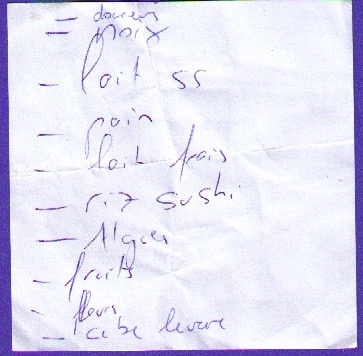 — noix
— lait ss
— pain
— lait frais
— riz sushi
— Algues
— fruits
— fleurs
— cube levure